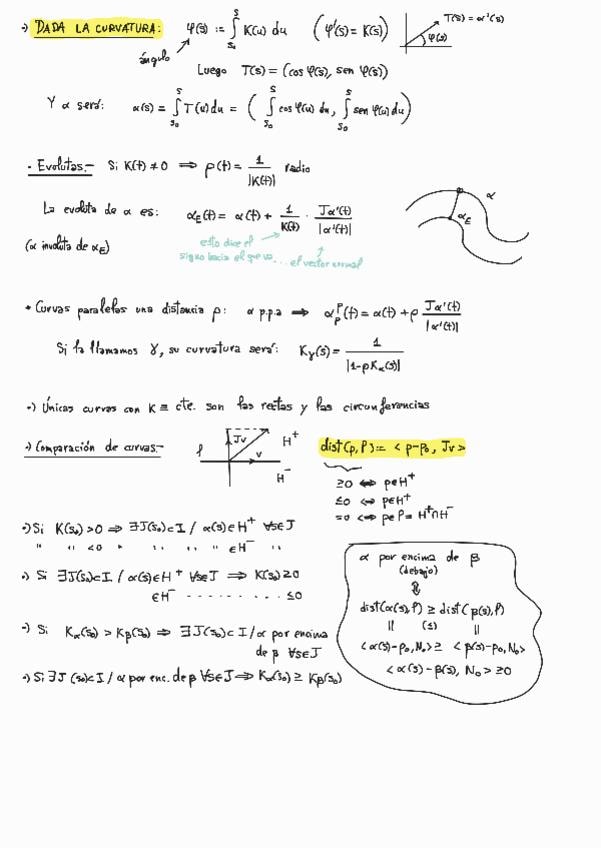 ·) DADA LA CURVATURA: φ(s) := ∫_{s₀}^{s} K(u) du (φ'(s) = K(s))
T(s) = α'(s)
φ(s)
ángulo
Luego T(s) = (cos φ(s), sen φ(s))
Y α será: α(s) = ∫_{s₀}^{s} T(u) du = ( ∫_{s₀}^{s} cos φ(u) du, ∫_{s₀}^{s} sen φ(u) du )
· Evolutas.- Si K(t) ≠ 0 ⟹ ρ(t) = 1/|K(t)| radio
La evoluta de α es: α_E(t) = α(t) + 1/K(t) · Jα'(t)/|α'(t)|
α
α_E
(α involuta de α_E)
esto dice el
signo hacia el que va... el vector normal
* Curvas paralelas una distancia ρ: α p.p.a ⟹ α_ρ^P(t) = α(t) + ρ Jα'(t)/|α'(t)|
Si la llamamos γ, su curvatura será: K_γ(s) = 1/|1-ρK_α(s)|
·) Únicas curvas con K ≡ cte. son las rectas y las circunferencias
·) Comparación de curvas.-
P Jv v H⁺ H⁻
dist(p,P) = <p-p₀, Jv>
≥0 ⟺ p∈H⁺
≤0 ⟺ p∈H⁺
=0 ⟺ p∈P = H⁺∩H⁻
·) Si K(s₀)>0 ⟹ ∃J(s₀)⊂I / α(s)∈H⁺ ∀s∈J
" " <0 " " " " ∈H⁻ "
·) Si ∃J(s₀)⊂I / α(s)∈H⁺ ∀s∈J ⟹ K(s₀)≥0
∈H⁻ - - - - - - - - ≤0
·) Si K_α(s₀) > K_β(s₀) ⟹ ∃J(s₀)⊂I / α por encima
de β ∀s∈J
·) Si ∃J(s₀)⊂I / α por enc. de β ∀s∈J ⟹ K_α(s₀) ≥ K_β(s₀)
α por encima de β
(debajo)
⇕
dist(α(s),P) ≥ dist(β(s),P)
|| (≤) ||
<α(s)-p₀, N₀> ≥ <β(s)-p₀, N₀>
<α(s)-β(s), N₀> ≥ 0